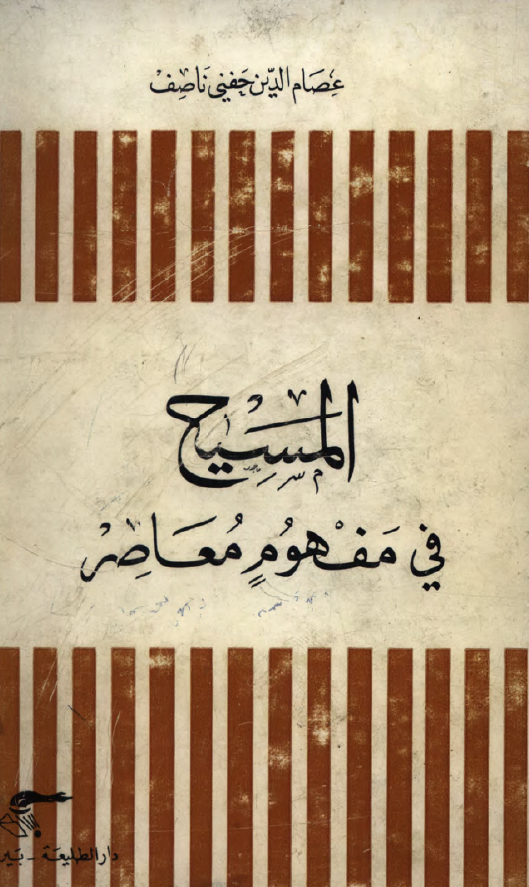 عِصَام الدِّين حَفني نَاصِف
المَسِيح
في مَفْهُومٍ مُعَاصِر
دار الطليعَة - بَير